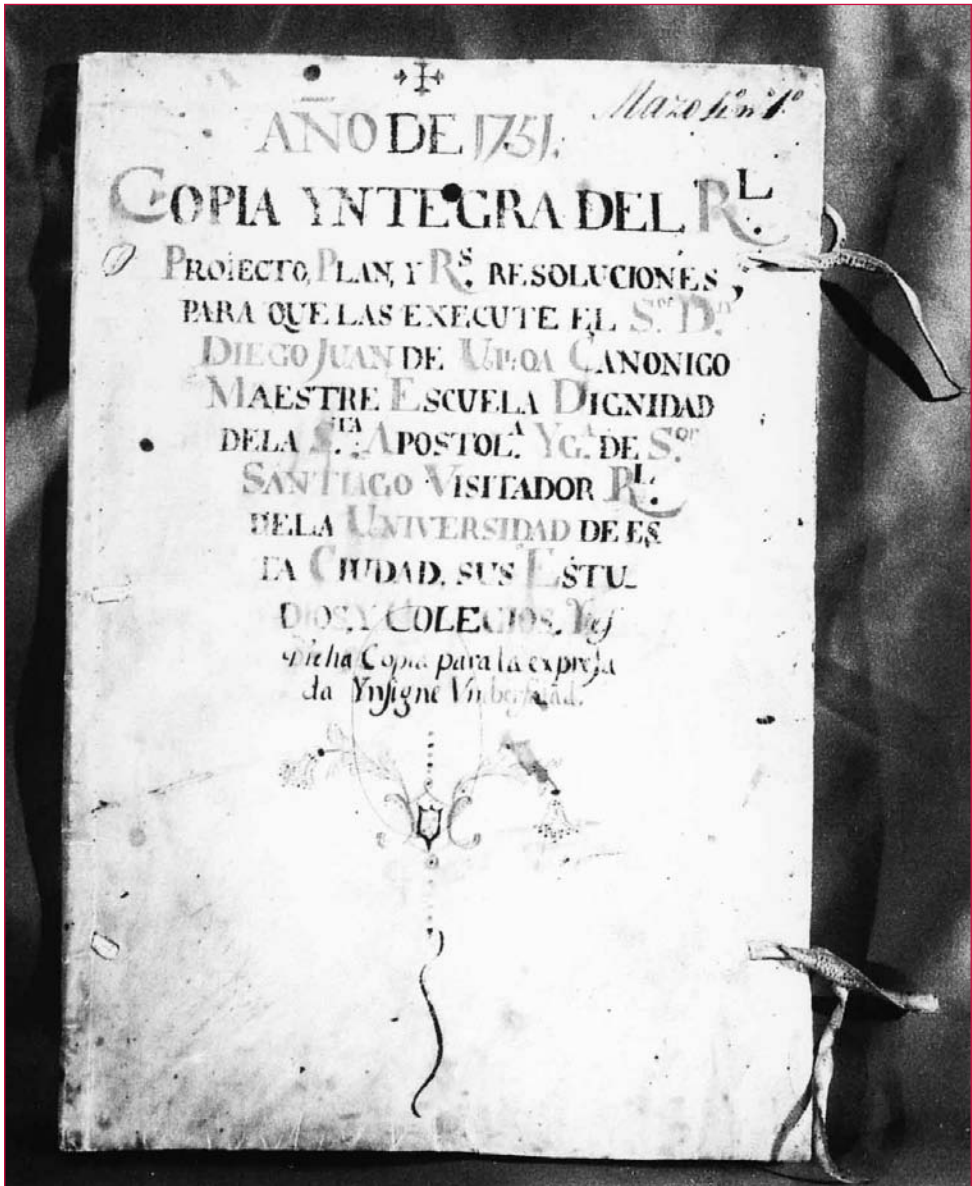 Mazo nº 1º
AÑO DE 1751.
COPIA YNTEGRA DEL R.L
PROIECTO, PLAN, Y R.S RESOLUCIONES,
PARA QUE LAS EXECUTE EL S.or D.n
DIEGO JUAN DE ULLOA CANONIGO
MAESTRE ESCUELA DIGNIDAD
DELA S.TA APOSTOL.A YG.A DE S.or
SANTIAGO VISITADOR R.L
DELA UNIVERSIDAD DE ES
TA CIUDAD. SUS ESTU-
DIOS, Y COLEGIOS. Y es
Dicha Copia para la expresa
da Ynsigne Vniversidad.